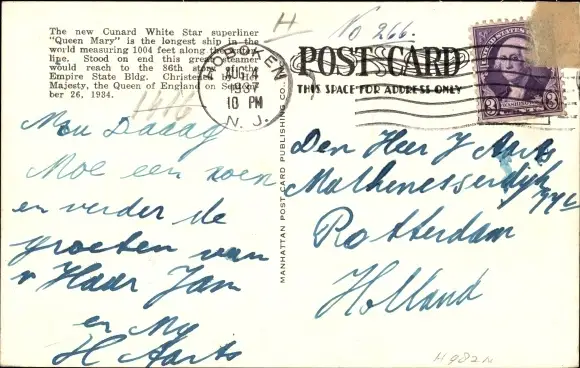 The new Cunard White Star superliner
"Queen Mary" is the longest ship in the
world measuring 1004 feet along the water
line. Stood on end this great steamer
would reach to the 86th story of the
Empire State Bldg. Christened by Her
Majesty, the Queen of England on Septem-
ber 26, 1934.
1416
H
No 266.
HOBOKEN
AUG 4
1937
10 PM
N. J.
POST CARD
THIS SPACE FOR ADDRESS ONLY
UNITED STATES
3
MANHATTAN POST CARD PUBLISHING CO.,
Moe een zoen
en verder de
groeten van
v Haar Jan
en My
H Aarts
Den Heer J Aarts
Mathenesserdijk
Rotterdam
Holland
H982N